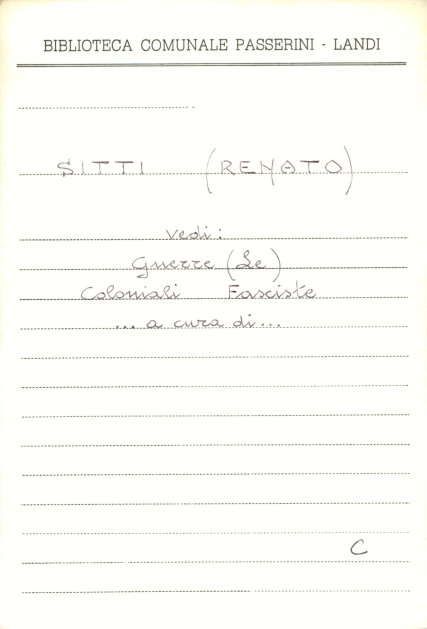 BIBLIOTECA COMUNALE PASSERINI - LANDI
SITTI (RENATO)
vedi:
Guerre (Le)
Coloniali Fasciste
... a cura di...
C